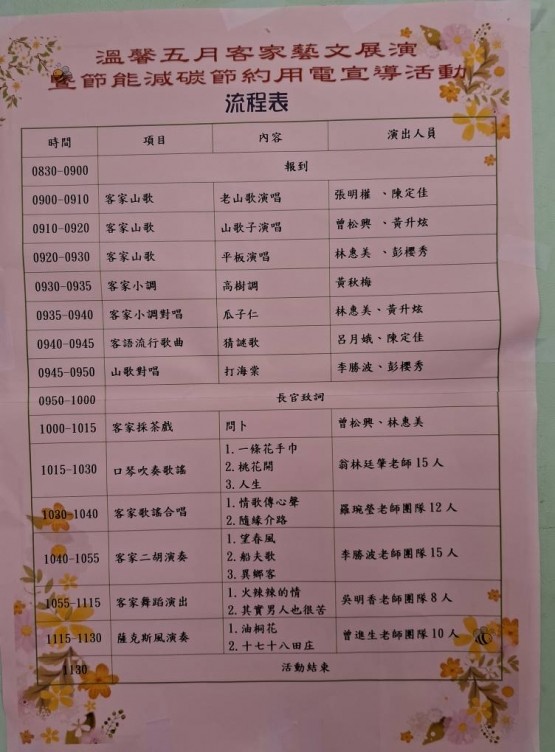 溫馨五月客家藝文展演
暨節能減碳節約用電宣導活動
流程表
時間 項目 內容 演出人員
0830-0900 報到
0900-0910 客家山歌 老山歌演唱 張明權、陳定佳
0910-0920 客家山歌 山歌子演唱 曾松興、黃升炫
0920-0930 客家山歌 平板演唱 林惠美、彭櫻秀
0930-0935 客家小調 高樹調 黃秋梅
0935-0940 客家小調對唱 瓜子仁 林惠美、黃升炫
0940-0945 客語流行歌曲 猜謎歌 呂月娥、陳定佳
0945-0950 山歌對唱 打海棠 李勝波、彭櫻秀
0950-1000 長官致詞
1000-1015 客家採茶戲 問卜 曾松興、林惠美
1015-1030 口琴吹奏歌謠 1.一條花手巾
2.桃花開
3.人生
翁林廷肇老師15人
1030-1040 客家歌謠合唱 1.情歌傳心聲
2.隨緣介路
羅琬瑩老師團隊12人
1040-1055 客家二胡演奏 1.望春風
2.船夫歌
3.異鄉客
李勝波老師團隊15人
1055-1115 客家舞蹈演出 1.火辣辣的情
2.其實男人也很苦
吳明香老師團隊8人
1115-1130 薩克斯風演奏 1.油桐花
2.十七十八田庄
曾進生老師團隊10人
1130 活動結束